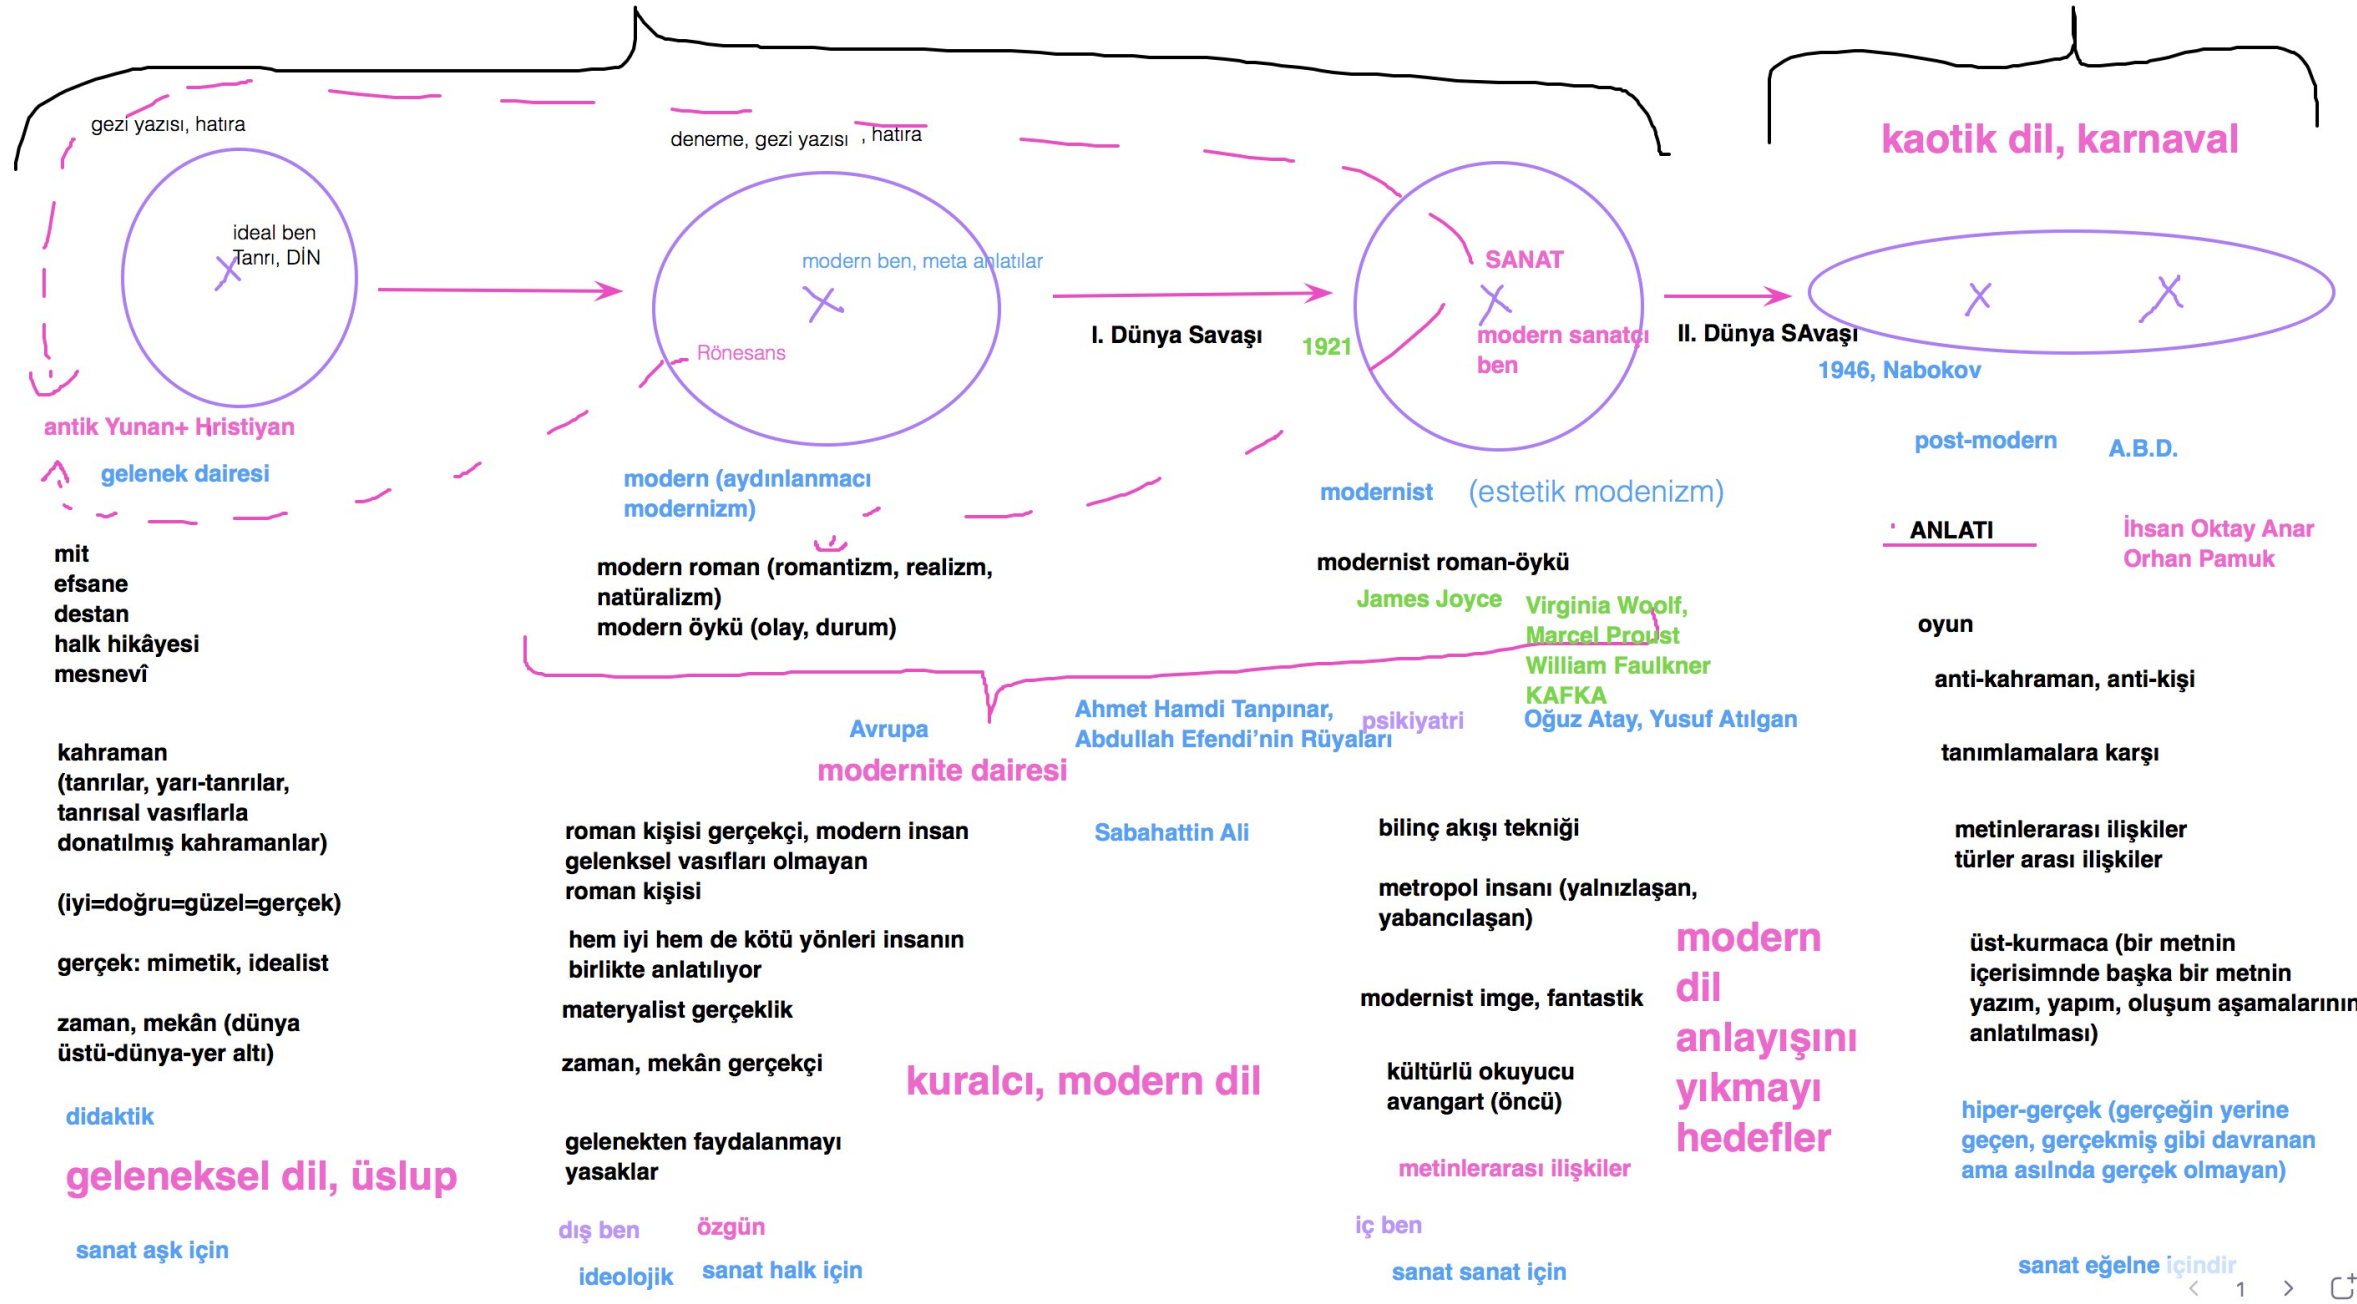 gezi yazısı, hatıra
ideal ben
Tanrı, DİN
antik Yunan+ Hristiyan
gelenek dairesi
mit
efsane
destan
halk hikâyesi
mesnevî
kahraman
(tanrılar, yarı-tanrılar,
tanrısal vasıflarla
donatılmış kahramanlar)
(iyi=doğru=güzel=gerçek)
gerçek: mimetik, idealist
zaman, mekân (dünya
üstü-dünya-yer altı)
didaktik
geleneksel dil, üslup
sanat aşk için
deneme, gezi yazısı , hatıra
modern ben, meta anlatılar
Rönesans
modern (aydınlanmacı
modernizm)
modern roman (romantizm, realizm,
natüralizm)
modern öykü (olay, durum)
Avrupa
modernite dairesi
Ahmet Hamdi Tanpınar,
Abdullah Efendi’nin Rüyaları
Sabahattin Ali
roman kişisi gerçekçi, modern insan
gelenksel vasıfları olmayan
roman kişisi
hem iyi hem de kötü yönleri insanın
birlikte anlatılıyor
materyalist gerçeklik
zaman, mekân gerçekçi
kuralcı, modern dil
gelenekten faydalanmayı
yasaklar
dış ben
özgün
ideolojik
sanat halk için
I. Dünya Savaşı
1921
SANAT
modern sanatçı
ben
modernist
(estetik modenizm)
modernist roman-öykü
James Joyce
Virginia Woolf,
Marcel Proust
William Faulkner
KAFKA
psikiyatri
Oğuz Atay, Yusuf Atılgan
bilinç akışı tekniği
metropol insanı (yalnızlaşan,
yabancılaşan)
modernist imge, fantastik
kültürlü okuyucu
avangart (öncü)
metinlerarası ilişkiler
iç ben
sanat sanat için
modern
dil
anlayışını
yıkmayı
hedefler
II. Dünya SAvaşı
kaotik dil, karnaval
1946, Nabokov
post-modern
A.B.D.
ANLATI
İhsan Oktay Anar
Orhan Pamuk
oyun
anti-kahraman, anti-kişi
tanımlamalara karşı
metinlerarası ilişkiler
türler arası ilişkiler
üst-kurmaca (bir metnin
içerisimnde başka bir metnin
yazım, yapım, oluşum aşamalarının
anlatılması)
hiper-gerçek (gerçeğin yerine
geçen, gerçekmiş gibi davranan
ama asılnda gerçek olmayan)
sanat eğelne içindir
1